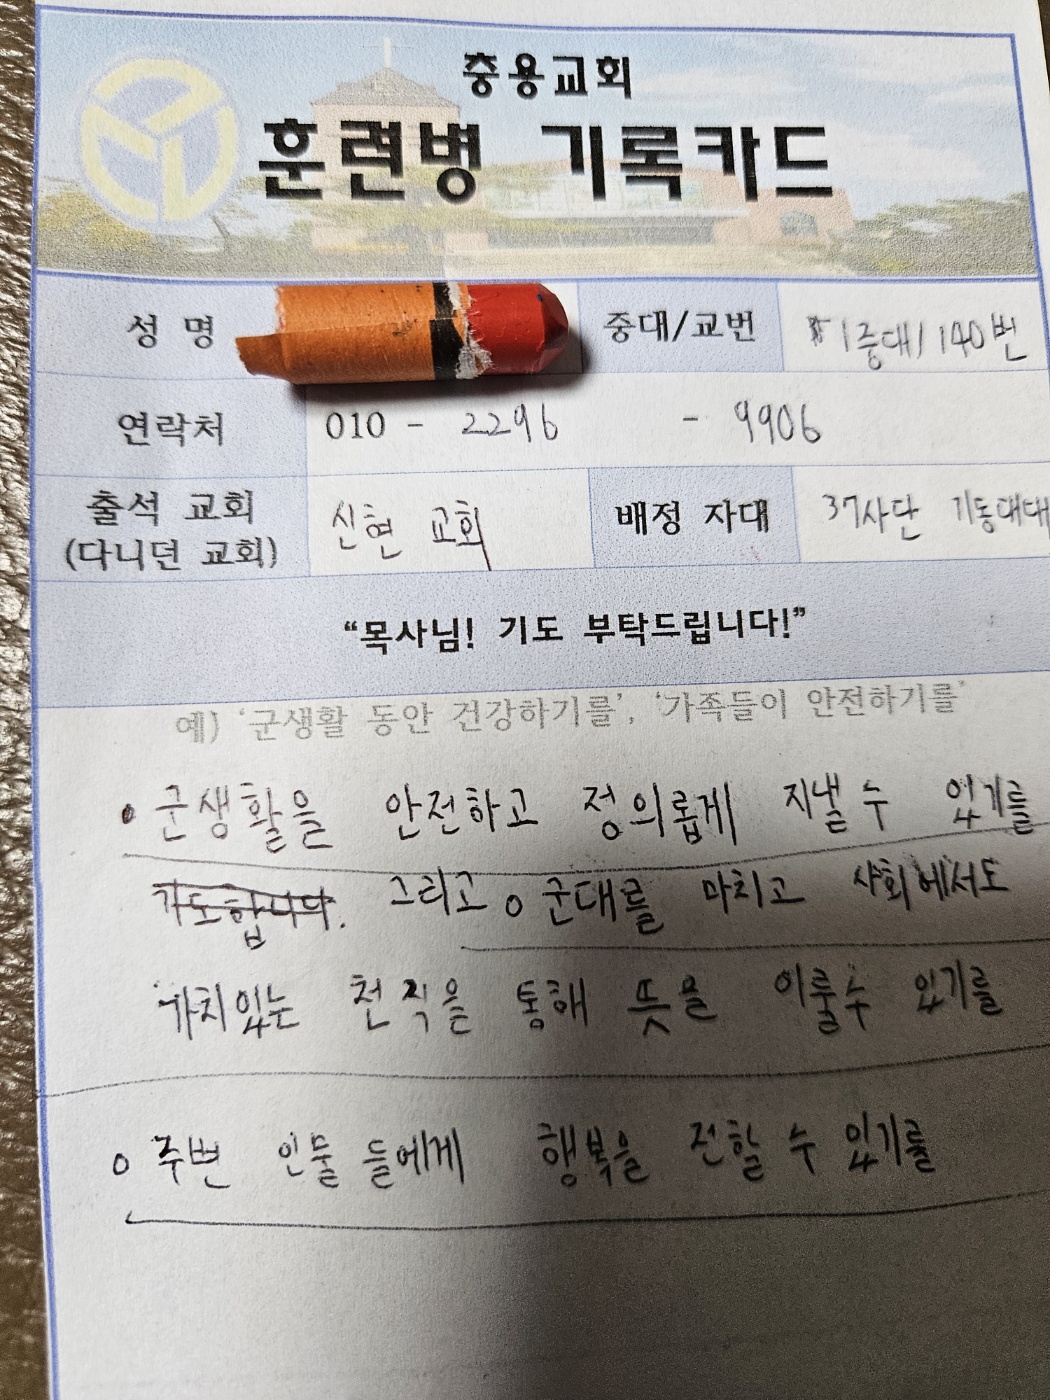 충용교회
훈련병 기록카드
성 명 중대/교번 1중대/ 140번
연락처 010 - 2296 - 9906
출석 교회 (다니던 교회) 신현 교회 배정 자대 37사단 기동대대
“목사님! 기도 부탁드립니다!”
예) ‘군생활 동안 건강하기를’, ‘가족들이 안전하기를’
• 군생활을 안전하고 정의롭게 지낼 수 있기를
기도합니다. 그리고 o 군대를 마치고 사회에서도
가치있는 천직을 통해 뜻을 이룰수 있기를
o 주변 인물 들에게 행복을 전할 수 있기를